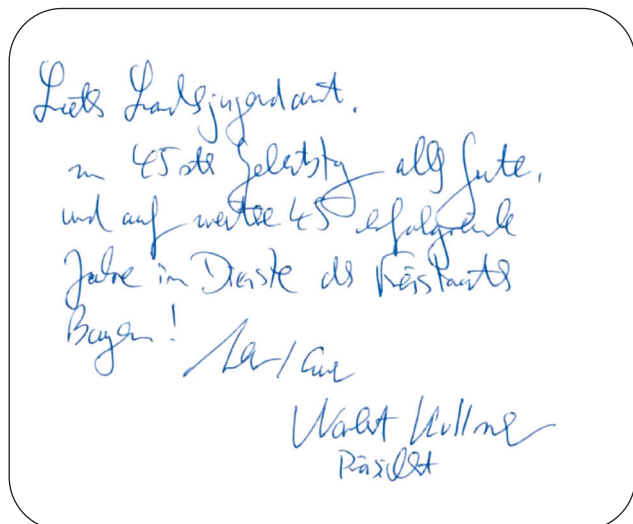 Liebes Landesjugendamt,
zum 45sten Geburtstag alles Gute,
und auf weitere 45 erfolgreiche
Jahre im Dienste des Freistaats
Bayern!
Norbert Kollmer
Präsident